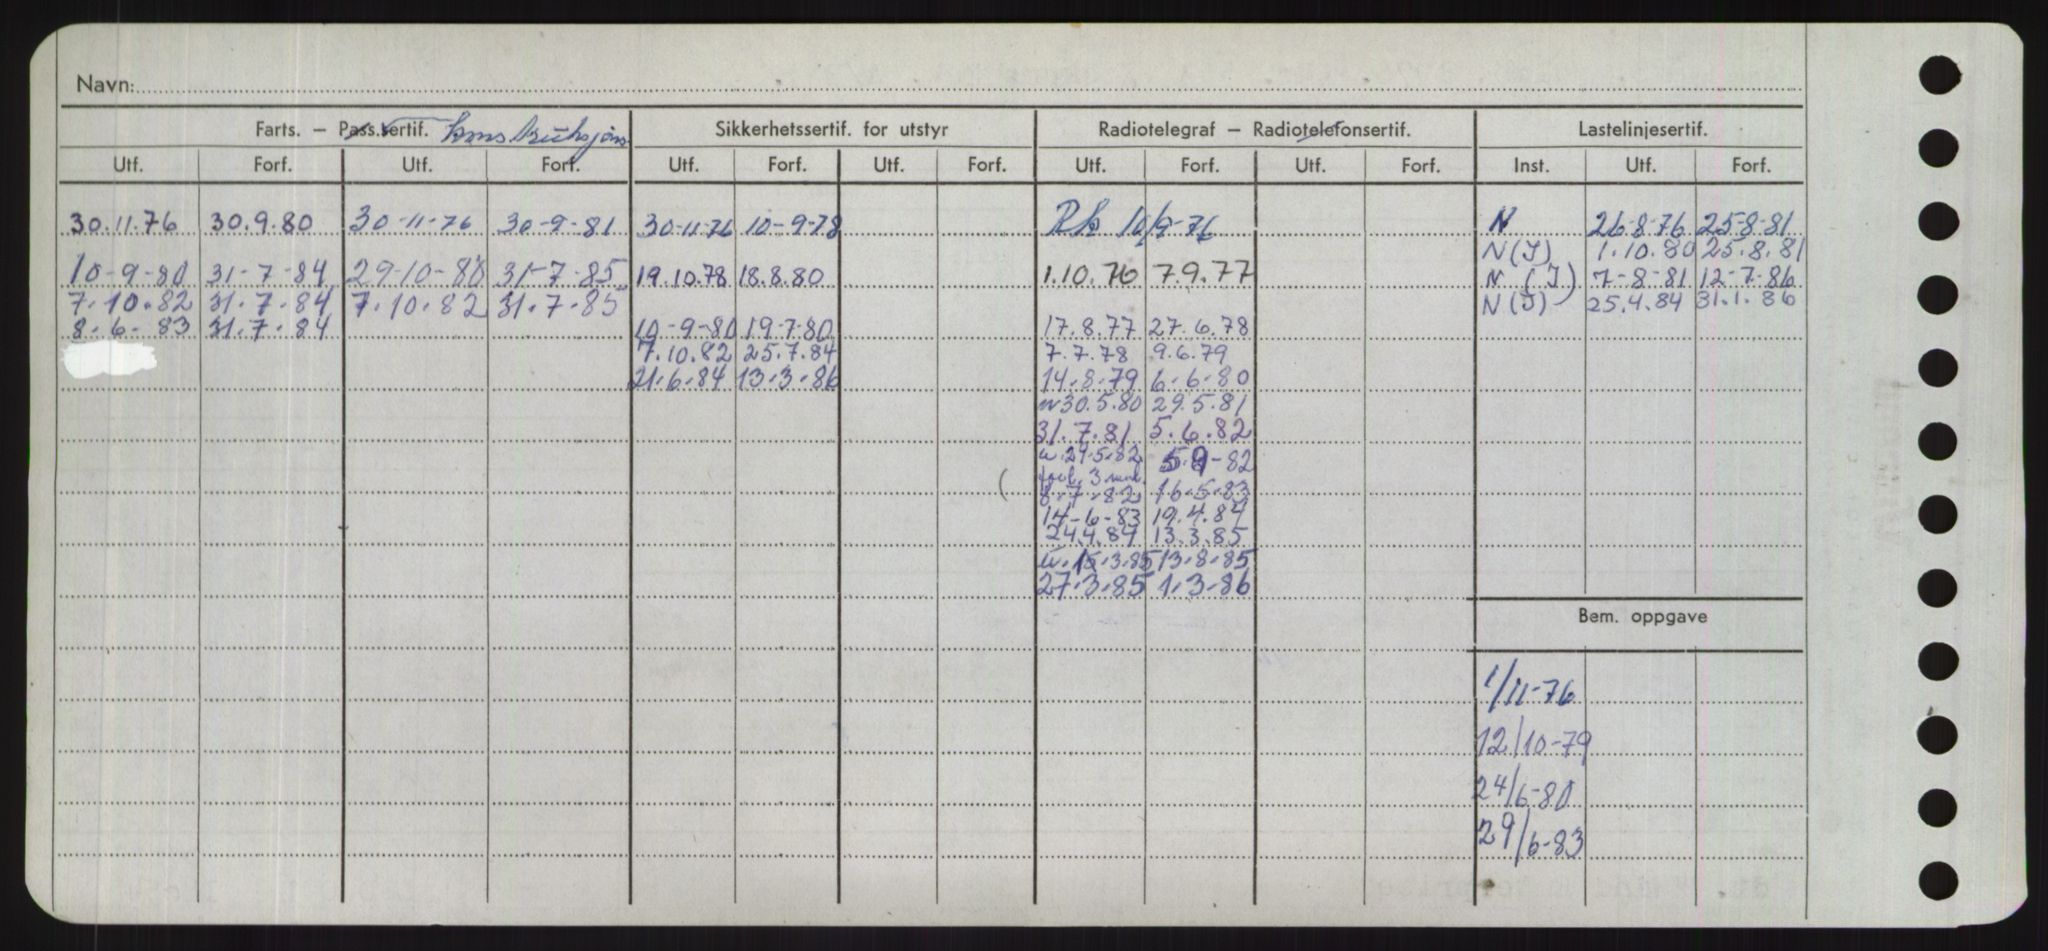 Navn:
Farts. – Pass.sertif. Konstruksjons Sikkerhetssertif. for utstyr Radiotelegraf – Radiotelefonsertif. Lastelinjesertif.
Utf. Forf. Utf. Forf. Utf. Forf. Utf. Forf. Utf. Forf. Utf. Forf. Inst. Utf. Forf.
30.11.76 30.9.80 30-11-76 30-9-81 30-11-76 10-9-78 Rk 10/9-76 N 26-8-76 25-8-81
N(I) 1.10.80 25.8.81
10-9-80 31-7-84 29-10-80 31-7-85 19.10.78 18.8.80 1.10.76 7.9.77 N (I) 7-8-81 12-7-86
7.10.82 31.7.84 7.10.82 31.7.85 N(I) 25.4.84 31.1.86
8.6-83 31.7.84 10-9-80 19-7-80 17.8.77 27.6.78
7.10.82 25.7.84 7.7.78 9.6.79
21.6.84 13.3.86 14.8.79 6.6.80
30.5.80 29.5.81
31.7.81 5.6.82
29.5.82 5.9-82
3
8.7.82 16.5.83
14-6-83 19.4.84
24.4.84 13.3.85
15.3.85 13.8.85
27.3.85 1.3.86
Bem. oppgave
1/11-76
12/10-79
24/6-80
29/6-83